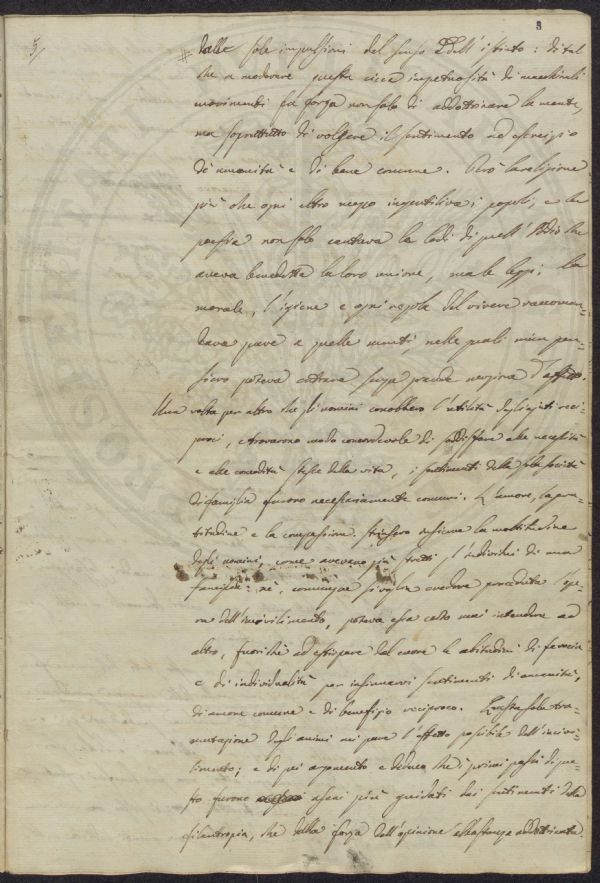 5/
3
# dalle sole impulsioni del senso e dell'istinto: di tal
che a moderare questa cieca impetuosità di macchinali
movimenti fa forza non solo di addottrinare la mente,
ma soprattutto di volgere il sentimento ad esercizio
di umanità e di bene comune. Però la religione
più che ogni altro mezzo ingentiliva i popoli; e la
poesia non solo cantava le lodi di quell'Iddio che
aveva benedetta la loro unione, ma le leggi; la
morale, l'igiene e ogni regola del vivere raccoman-
dava pure a quelle menti, nelle quali niun pen-
siero poteva entrare senza prender
Una volta per altro che gli uomini conobbero l'utilità degli ajuti reci-
proci, e trovarono modo concordevole di soddisfare alle necessità
e alle comodità stesse della vita, i sentimenti della sola società
di famiglia furono necessariamente comuni. L'amore, la gra-
titudine e la compassione strinsero insieme la moltitudine
degli uomini, come avevano già stretti gl'individui di una
famiglia: nè, comunque si voglia credere proceduta l'ope-
ra dell'incivilimento, poteva essa certo mai intendere ad
altro, fuorichè ad estirpare dal cuore le abitudini di ferocia
e di individualità per insinuarvi sentimenti di umanità,
di amore comune e di benefizio reciproco. Questa sola tra-
mutazione degli animi mi pare l'effetto possibile dell'incivi-
limento; e di quì argomento e deduco che i primi passi di que-
sto furono assai più guidati dai sentimenti della
filantropia, che dalla forza dell'opinione addottrinata.